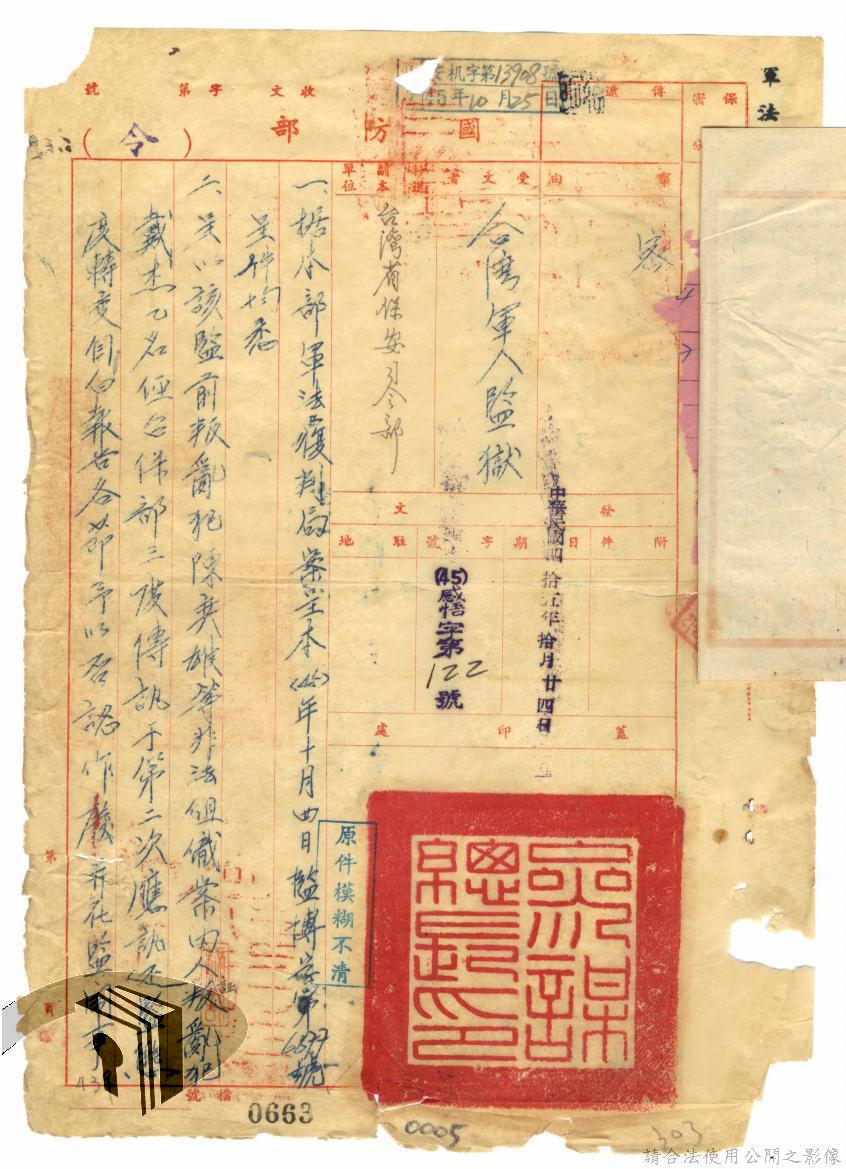 軍法
保密
傳遞
安机字第13908號
45年10月25日
收文 字第 號
國防部
(令)
事由
密
受文者
台灣軍人監獄
副本
單位
台灣省保安司令部
發文
附件
日期
字號
駐地
中華民國四拾五年拾月廿四日
(45)感悟字第122號
蓋印處
參謀總長之印
一、據本部軍法覆判局案呈本(45)年十月四日監搏字第6577號
呈件均悉
二、呈以該監前叛亂犯陳英雄等非法組織案內人叛亂犯
戴杰乙名經台保部三度傳訊于第二次應訊
度轉變自白報告各節予以否認作廢
原件模糊不清
第
頁
檔號
0663
0005
303
請合法使用公開之影像